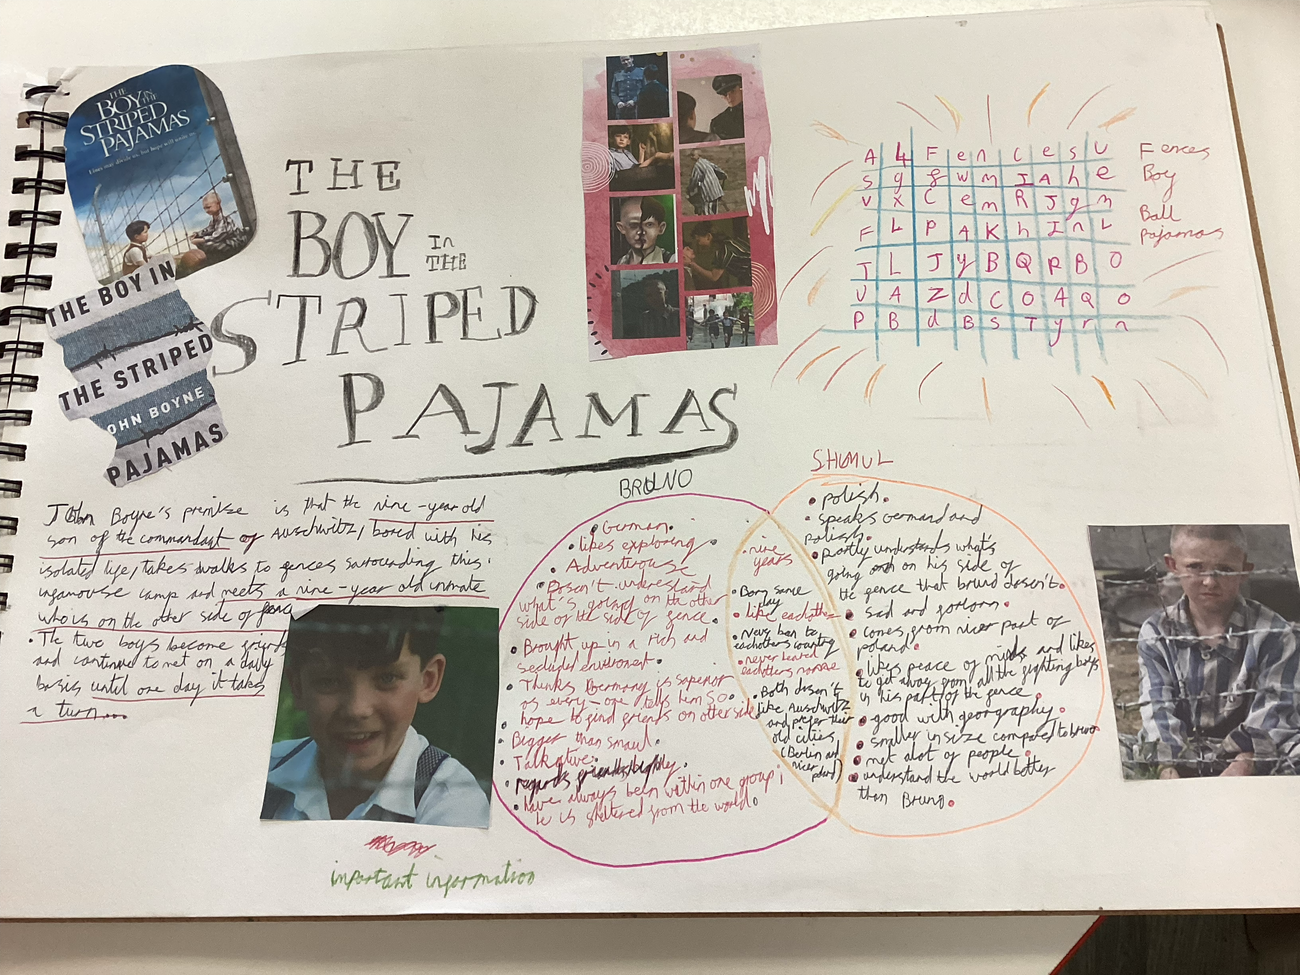 THE
BOY IN THE
STRIPED
PAJAMAS
Lines may divide us, but hope will unite us
THE BOY IN
THE STRIPED
JOHN BOYNE
PAJAMAS
THE
BOY In THE
STRIPED
PAJAMAS
A L F e n c e s U
s g f w m I A h e
v x C e m R J g n
F L P A K h I n L
T L J y B Q R B O
U A Z d C O A Q o
P B d B s T y r n
Fences
Boy
Ball
Pajamas
John Boyne's premise is that the nine-year old
son of the commandant of Auschwitz, bored with his
isolated life, takes walks to fences surrounding this
infamouse camp and meets a nine-year old inmate
who is on the other side of fence
• The two boys become friends
and continue to met on a daily
basis until one day it takes
a turn...
important information
BRUNO
• German.
• likes exploring.
• Adventurouse
• Doesn't understand
what's going on the other
side of the side of fence.
• Brought up in a rich and
secluded enviroment.
• Thinks Germany is superior
as every-one tells him so.
• hope to find friends on otherside
• Bigger than shmul.
• Talkative.
• regards friends highly.
• have always been within one group,
he is sheltered from the world.
• nine
years
• Born same
day
• like eachother
• Never ban to
eachothers country
• never heard
eachothers name
• Both doesn't
like Auschwitz
and prefer their
old cities,
(Berlin and
nicer
pland)
SHUMUL
• polish.
• speaks German and
polish.
• partly understands what's
going on on his side of
the fence that bruno doesn't.
• sad and forlorn.
• comes from nicer part of
poland.
• likes peace of minds and likes
to get away from all the fighting boys
in his part of the fence.
• good with geography.
• smaller in size compared to bruno
• met alot of people.
• understand the world better
than Bruno.